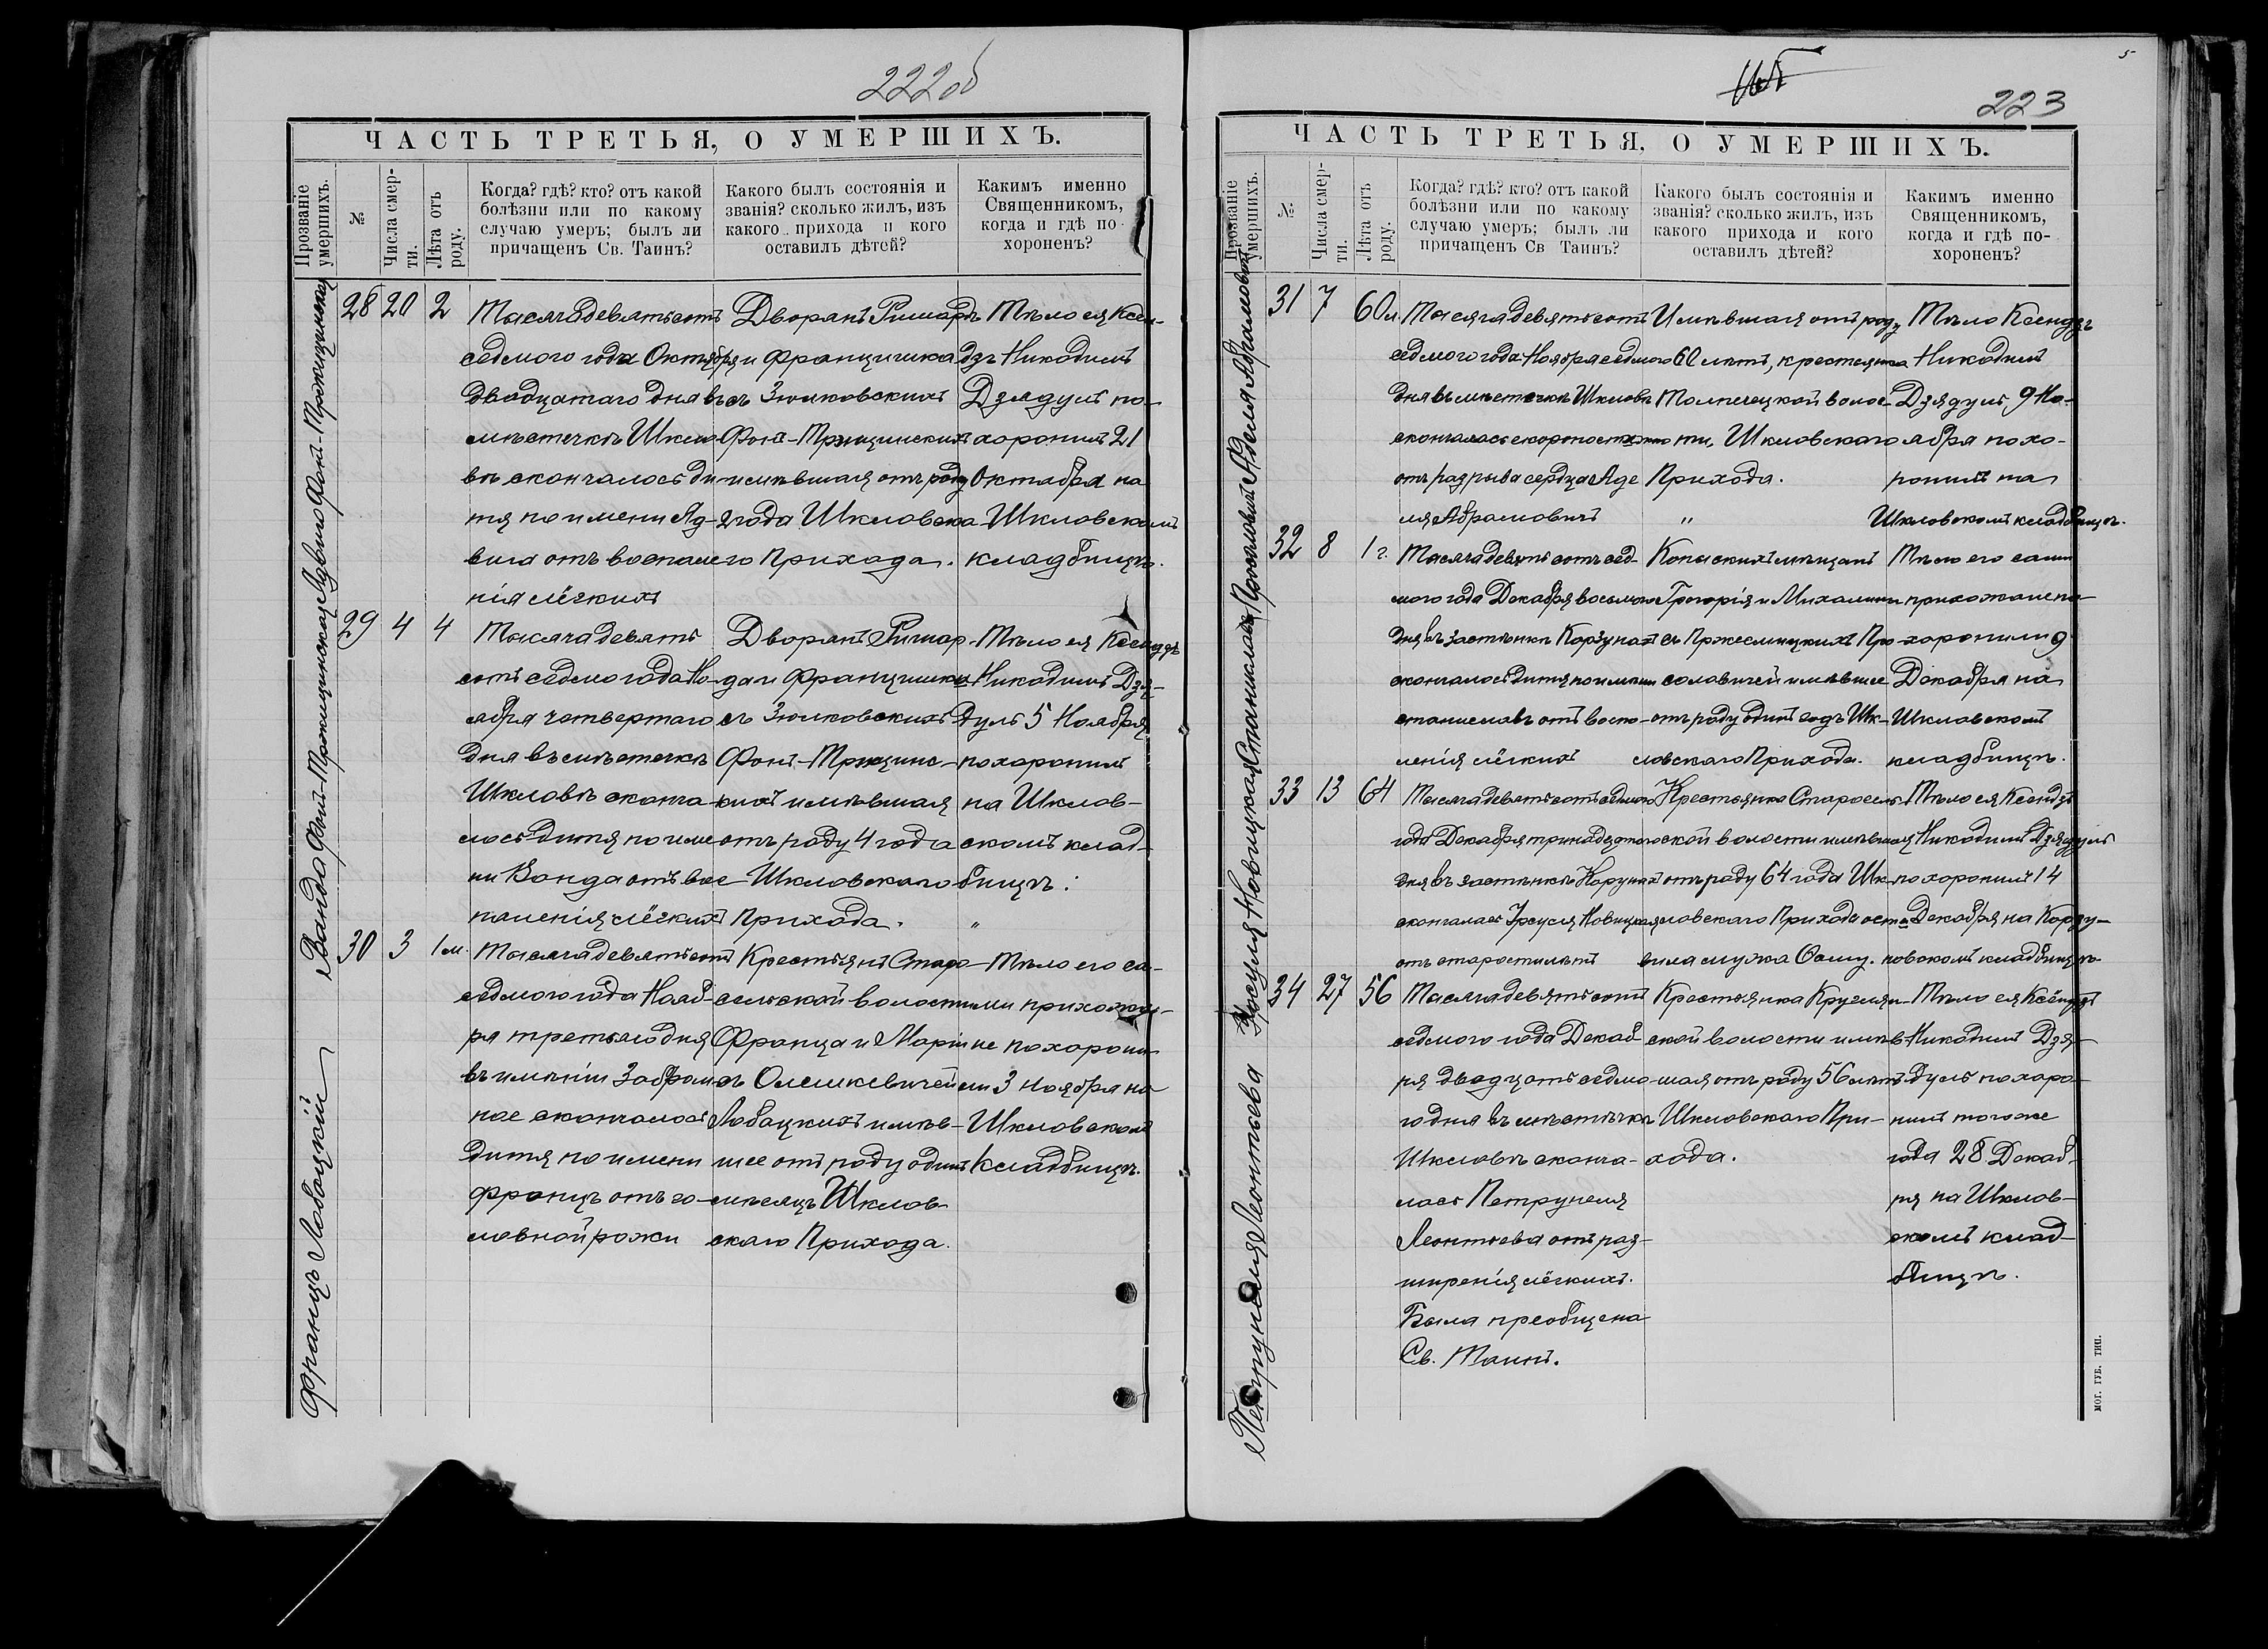 222об
ЧАСТЬ ТРЕТЬЯ, О УМЕРШИХЪ.
Прозваніе умершихъ.
№
Числа смер-
ти.
Лѣта отъ
роду.
Когда? гдѣ? кто? отъ какой
болѣзни или по какому
случаю умеръ; былъ ли
причащенъ Св. Таинъ?
Какого былъ состоянія и
званія? сколько жилъ, изъ
какого прихода и кого
оставилъ дѣтей?
Какимъ именно
Священникомъ,
когда и гдѣ по-
хороненъ?
28 20 2
Тысяча девятьсотъ
седмого года Октября
двадцатаго дня въ
мѣстечкѣ Шкло-
вѣ скончалось ди-
тя по имени Яд-
вига отъ воспале-
нія лёгкихъ
Дворянъ Ришарда
и Францишка
съ Зюлковскихъ
Фонъ-Тржцинскихъ
имѣвшая отъ роду
2 года Шкловска-
го Прихода.
Тѣло ея Ксен-
дзъ Никодимъ
Дзядуль по-
хоронилъ 21
Октября на
Шкловскомъ
кладбищѣ.
29 4 4
Тысяча девять
сотъ седмого года Но-
ября четвертаго
дня въ мѣстечкѣ
Шкловѣ сконча-
лось дитя по име
ни Ванда отъ вос-
паленія лёгкихъ
Дворянъ Ришар-
да и Францишки
съ Зюлковскихъ
Фонъ-Тржцинс-
кихъ имѣвшая
отъ роду 4 года
Шкловскаго
Прихода.
Тѣло ея Ксендзъ
Никодимъ Дзя-
дуль 5 Ноября
похоронилъ
на Шклов-
скомъ клад-
бищѣ.
"
30 3 1 м.
Тысяча девятьсотъ
седмого года Нояб-
ря третьяго дня
въ имѣніи Забром-
ное скончалось
дитя по имени
Францъ отъ го-
ловной рожи
Крестьянъ Старо-
сельской волости
Франца и Маріи
съ Олешкевичей
Лобацкихъ имѣв-
шее отъ роду одинъ
мѣсяцъ Шклов-
скаго Прихода.
Тѣло его са-
ми прихожа-
не похорони-
ли 3 Ноября на
Шкловскомъ
кладбищѣ.
Ванда Фонъ-Тржцинская
Францъ Лобацкій
223
5
ЧАСТЬ ТРЕТЬЯ, О УМЕРШИХЪ.
Прозваніе
умершихъ.
№
Числа смер-
ти.
Лѣта отъ
роду.
Когда? гдѣ? кто? отъ какой
болѣзни или по какому
случаю умеръ; былъ ли
причащенъ Св Таинъ?
Какого былъ состоянія и
званія? сколько жилъ, изъ
какого прихода и кого
оставилъ дѣтей?
Какимъ именно
Священникомъ,
когда и гдѣ по-
хороненъ?
31 7 60 л.
Тысяча девятьсотъ
седмого года Ноября седмого
дня въ мѣстечкѣ Шкловѣ
скончалась скоропостижно
отъ разрыва сердца Аде
ля Абрамовичъ
Имѣвшая отъ роду
60 лѣтъ, крестьянка
Толпечецкой волос-
ти, Шкловскаго
Прихода.
"
Тѣло Ксендзъ
Никодимъ
Дзядуль 9 Но-
ября похо-
ронилъ на
Шкловскомъ кладбищѣ.
32 8 1 г.
Тысяча девятьсотъ сед-
мого года Декабря восьмого
дня въ застѣнкѣ Корзунахъ
скончалось дитя по имени
Станиславъ отъ воспа-
ленія лёгкихъ
Копыскихъ мѣщанъ
Григорія и Михалины
съ Пржесмыцкихъ Про
соловичей имѣвшее
отъ роду одинъ годъ Шк-
ловскаго Прихода.
Тѣло его сами
прихожане по-
хоронили 9
Декабря на
Шкловскомъ
кладбищѣ.
33 13 64
Тысяча девятьсотъ седмого
года Декабря тринадцатого
дня въ застѣнкѣ Корунахъ
скончалась Урсуля Новицкая
отъ старости лѣтъ
Крестьянка Старосель
ской волости имѣвшая
отъ роду 64 года Шк-
ловскаго Прихода оста-
вила мужа Осипу.
Тѣло ея Ксендзъ
Никодимъ Дзядуль
похоронилъ 14
Декабря на Корзу-
новскомъ кладбищѣ
34 27 56
Тысяча девятьсотъ
седмого года Декаб-
ря двадцать седмо-
го дня въ мѣстѣчкѣ
Шкловѣ сконча-
лась Петрунеля
Леонтьева отъ раз-
ширенія лёгкихъ.
Была преобщена
Св. Таинъ.
Крестьянка Круглян-
ской волости имѣв-
шая отъ роду 56 лѣтъ
Шкловскаго При-
хода.
Тѣло ея Ксёндзъ
Никодимъ Дзя-
дуль похоро-
нилъ тогоже
года 28 Декаб-
ря на Шклов-
скомъ клад-
бищѣ.
Аделя Абрамовичъ
Станиславъ Просоловичъ
Урсуля Новицкая
Петрунеля Леонтьева
МОГ. ГУБ. ТИП.